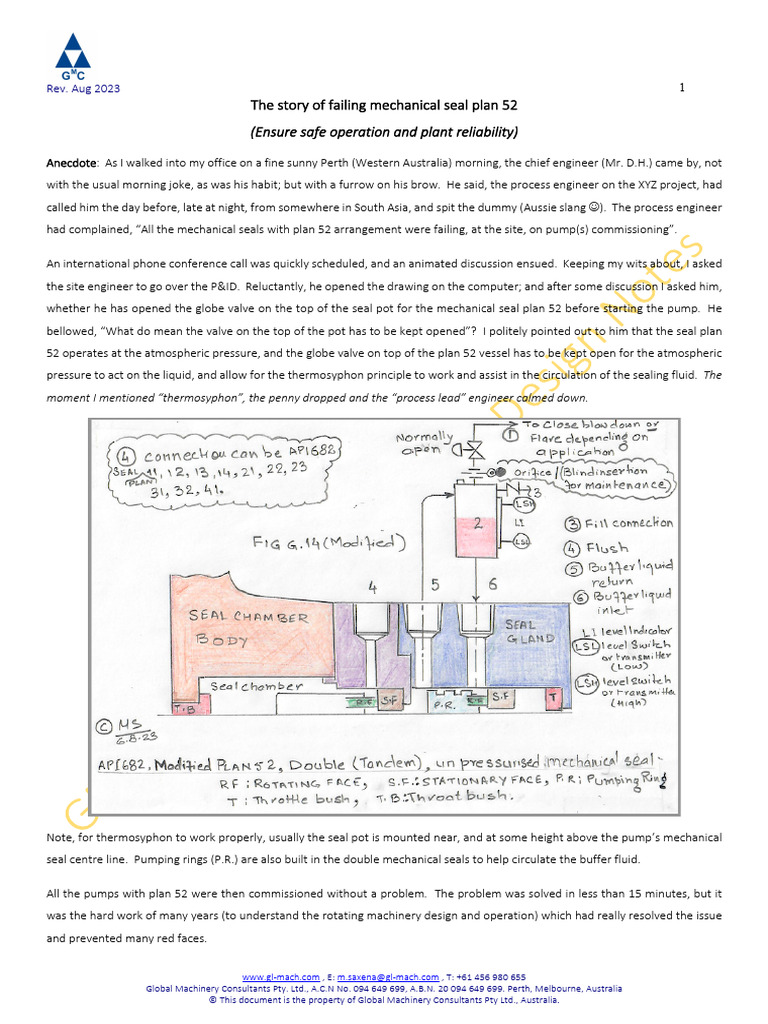 GMC
Rev. Aug 2023
1
The story of failing mechanical seal plan 52
(Ensure safe operation and plant reliability)
Anecdote: As I walked into my office on a fine sunny Perth (Western Australia) morning, the chief engineer (Mr. D.H.) came by, not
with the usual morning joke, as was his habit; but with a furrow on his brow. He said, the process engineer on the XYZ project, had
called him the day before, late at night, from somewhere in South Asia, and spit the dummy (Aussie slang ☺). The process engineer
had complained, “All the mechanical seals with plan 52 arrangement were failing, at the site, on pump(s) commissioning”.
An international phone conference call was quickly scheduled, and an animated discussion ensued. Keeping my wits about, I asked
the site engineer to go over the P&ID. Reluctantly, he opened the drawing on the computer; and after some discussion I asked him,
whether he has opened the globe valve on the top of the seal pot for the mechanical seal plan 52 before starting the pump. He
bellowed, “What do mean the valve on the top of the pot has to be kept opened”? I politely pointed out to him that the seal plan
52 operates at the atmospheric pressure, and the globe valve on top of the plan 52 vessel has to be kept open for the atmospheric
pressure to act on the liquid, and allow for the thermosyphon principle to work and assist in the circulation of the sealing fluid. The
moment I mentioned “thermosyphon”, the penny dropped and the “process lead” engineer calmed down.
Design Notes
4 connection can be API682
SEAL PLAN 11, 12, 13, 14, 21, 22, 23
31, 32, 41.
Normally open
1 To Close blow down or
Flare depending on
application
Orifice/(Blind insertion
for maintenance)
3
LSH
2
LI
LSL
FIG G.14 (Modified)
3 Fill connection
4 Flush
5 Buffer liquid
return
6 Buffer liquid
inlet
LI level Indicator
LSL level switch
or transmitter
(Low)
LSH level switch
or transmitter
(High)
4 5 6
SEAL CHAMBER
BODY
SEAL
GLAND
Seal chamber
T.B
R.F S.F P.R. R.F S.F T
© MS
6.8.23
API682, Modified PLAN 52, Double (Tandem), unpressurised mechanical seal.
RF: ROTATING FACE, S.F.: STATIONARY FACE, P.R: Pumping Ring
T: Throttle bush, T.B: Throat bush.
Note, for thermosyphon to work properly, usually the seal pot is mounted near, and at some height above the pump’s mechanical
seal centre line. Pumping rings (P.R.) are also built in the double mechanical seals to help circulate the buffer fluid.
All the pumps with plan 52 were then commissioned without a problem. The problem was solved in less than 15 minutes, but it
was the hard work of many years (to understand the rotating machinery design and operation) which had really resolved the issue
and prevented many red faces.
www.gl-mach.com , E: m.saxena@gl-mach.com , T: +61 456 980 655
Global Machinery Consultants Pty. Ltd., A.C.N No. 094 649 699, A.B.N. 20 094 649 699. Perth, Melbourne, Australia
© This document is the property of Global Machinery Consultants Pty Ltd., Australia.